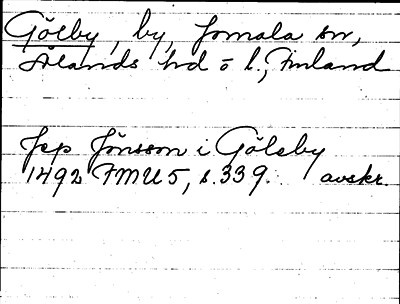 Gölby, by, Jomala sn,
Ålands hd o l., Finland
Jep Jönsson i Göleby
1492 FMU 5, s. 339. avskr.